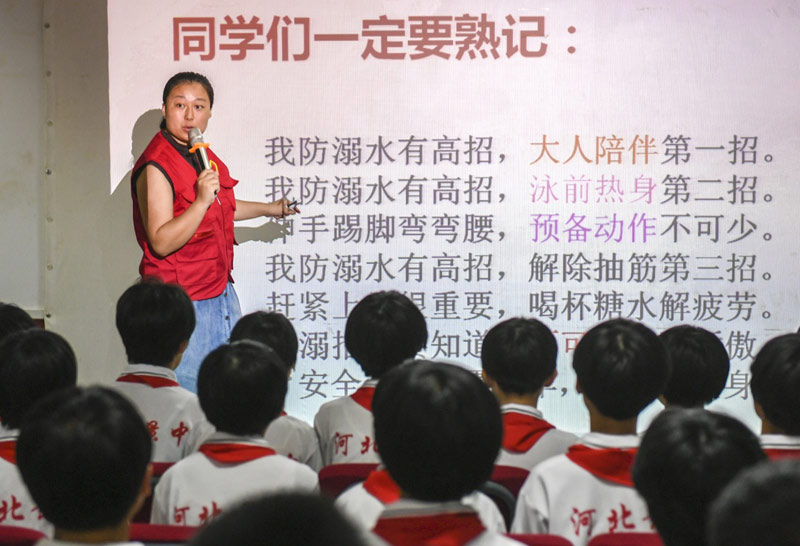 同学们一定要熟记：
我防溺水有高招，大人陪伴第一招。
我防溺水有高招，泳前热身第二招。
手踢脚弯弯腰，预备动作不可少。
我防溺水有高招，解除抽筋第三招。
赶紧上 很重要，喝杯糖水解疲劳。
溺招 知道 可 傲
安全 身
中
河北
河北
河北